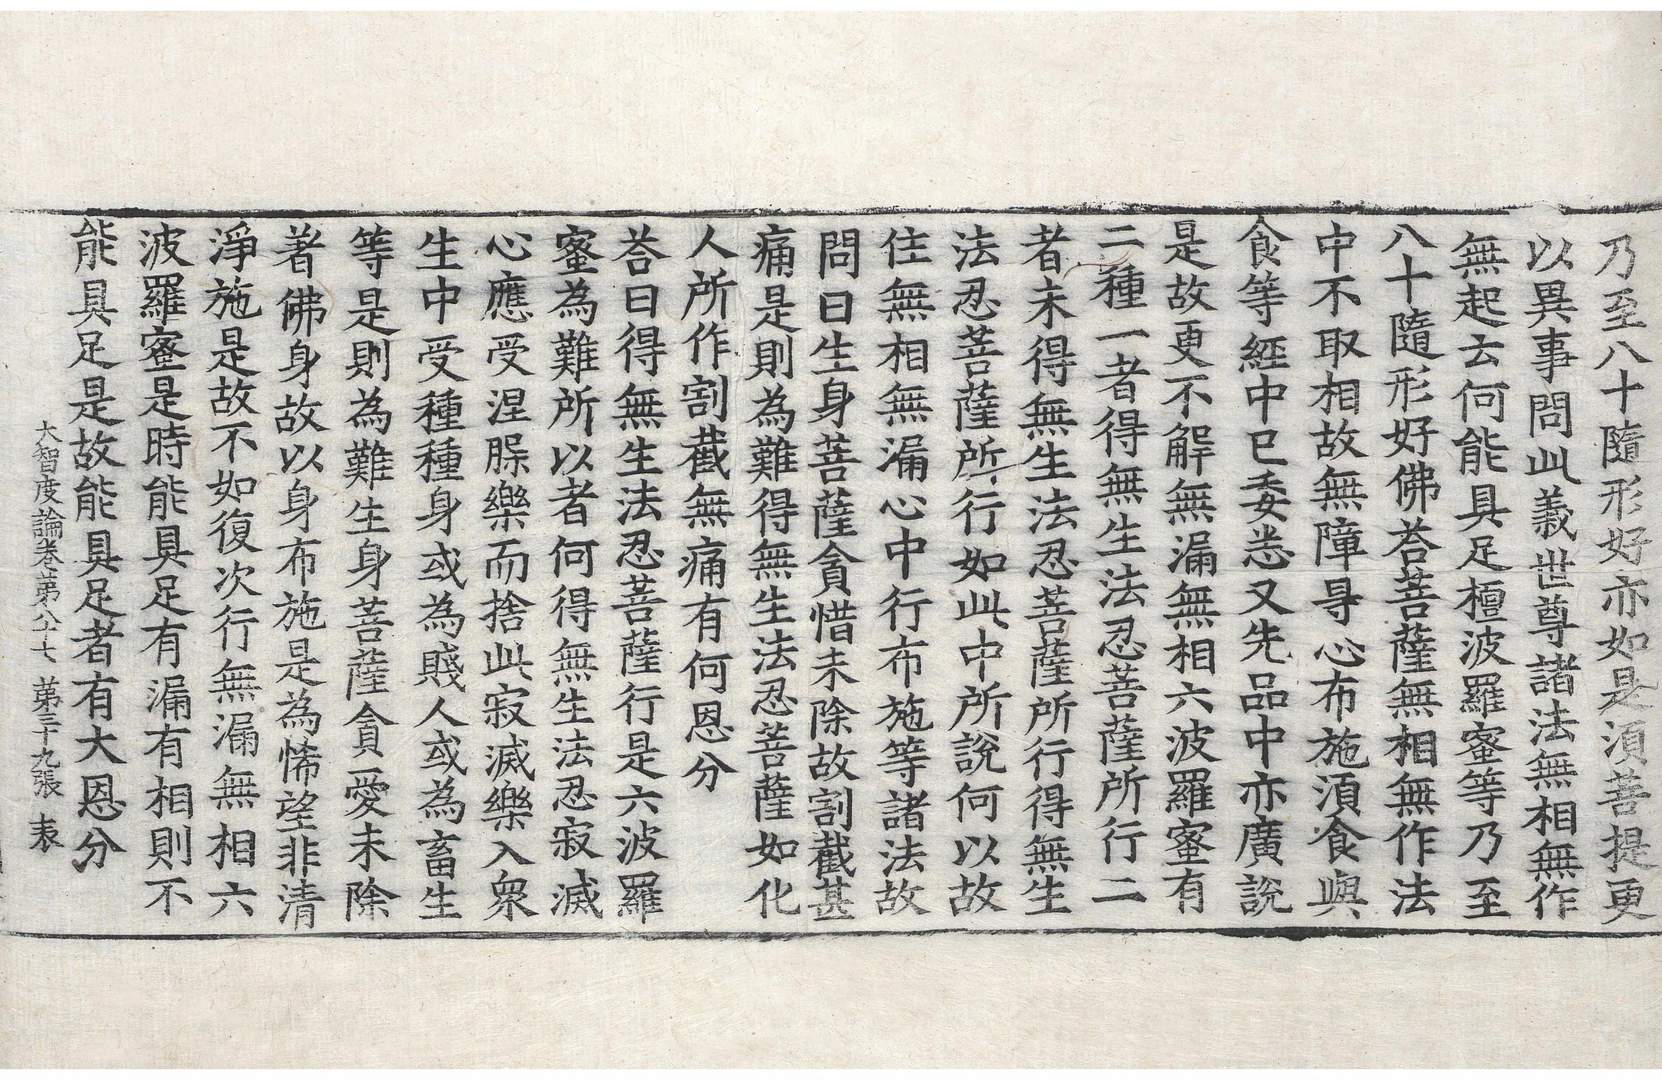 乃至八十隨形好亦如是湏菩提更
以異事問此義世尊諸法無相無作
無起云何能具足檀波羅蜜等乃至
八十隨形好佛荅菩薩無相無作法
中不取相故無障㝵心布施湏食與
食等經中已委悉又先品中亦廣說
是故更不解無漏無相六波羅蜜有
二種一者得無生法忍菩薩所行二
者未得無生法忍菩薩所行得無生
法忍菩薩所行如此中所說何以故
住無相無漏心中行布施等諸法故
問曰生身菩薩貪惜未除故割截甚
痛是則為難得無生法忍菩薩如化
人所作割截無痛有何恩分
荅曰得無生法忍菩薩行是六波羅
蜜為難所以者何得無生法忍寂滅
心應受涅槃樂而捨此寂滅樂入衆
生中受種種身或為賤人或為畜生
等是則為難生身菩薩貪愛未除
著佛身故以身布施是為悕望非清
淨施是故不如復次行無漏無相六
波羅蜜是時能具足有漏有相則不
能具足是故能具足者有大恩分
大智度論卷第八十七 第三十九張 表